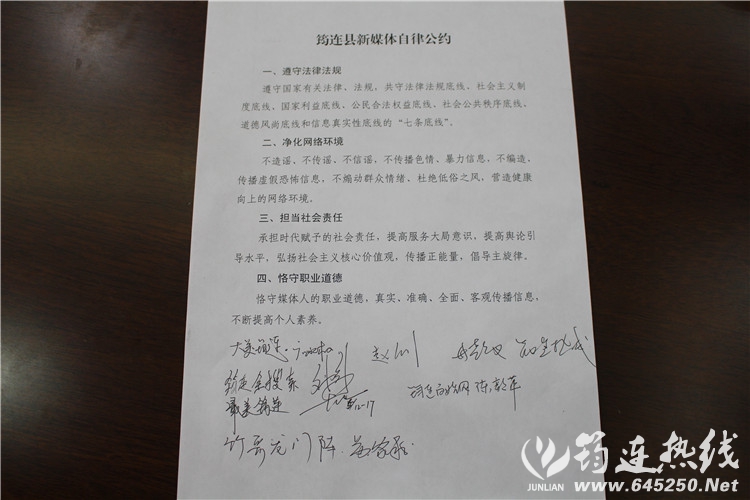 筠连县新媒体自律公约
一、遵守法律法规
遵守国家有关法律、法规，共守法律法规底线、社会主义制
度底线、国家利益底线、公民合法权益底线、社会公共秩序底线、
道德风尚底线和信息真实性底线的“七条底线”。
二、净化网络环境
不造谣、不传谣、不信谣、不传播色情、暴力信息，不编造、
传播虚假恐怖信息，不煽动群众情绪、杜绝低俗之风，营造健康
向上的网络环境。
三、担当社会责任
承担时代赋予的社会责任，提高服务大局意识，提高舆论引
导水平，弘扬社会主义核心价值观，传播正能量，倡导主旋律。
四、恪守职业道德
恪守媒体人的职业道德，真实、准确、全面、客观传播信息，
不断提高个人素养。
大美筠连
赵
筠连全搜索
最美筠连
12-17
陈
竹 龙门阵
筠连热线
JUNLIAN
www.645250.Net